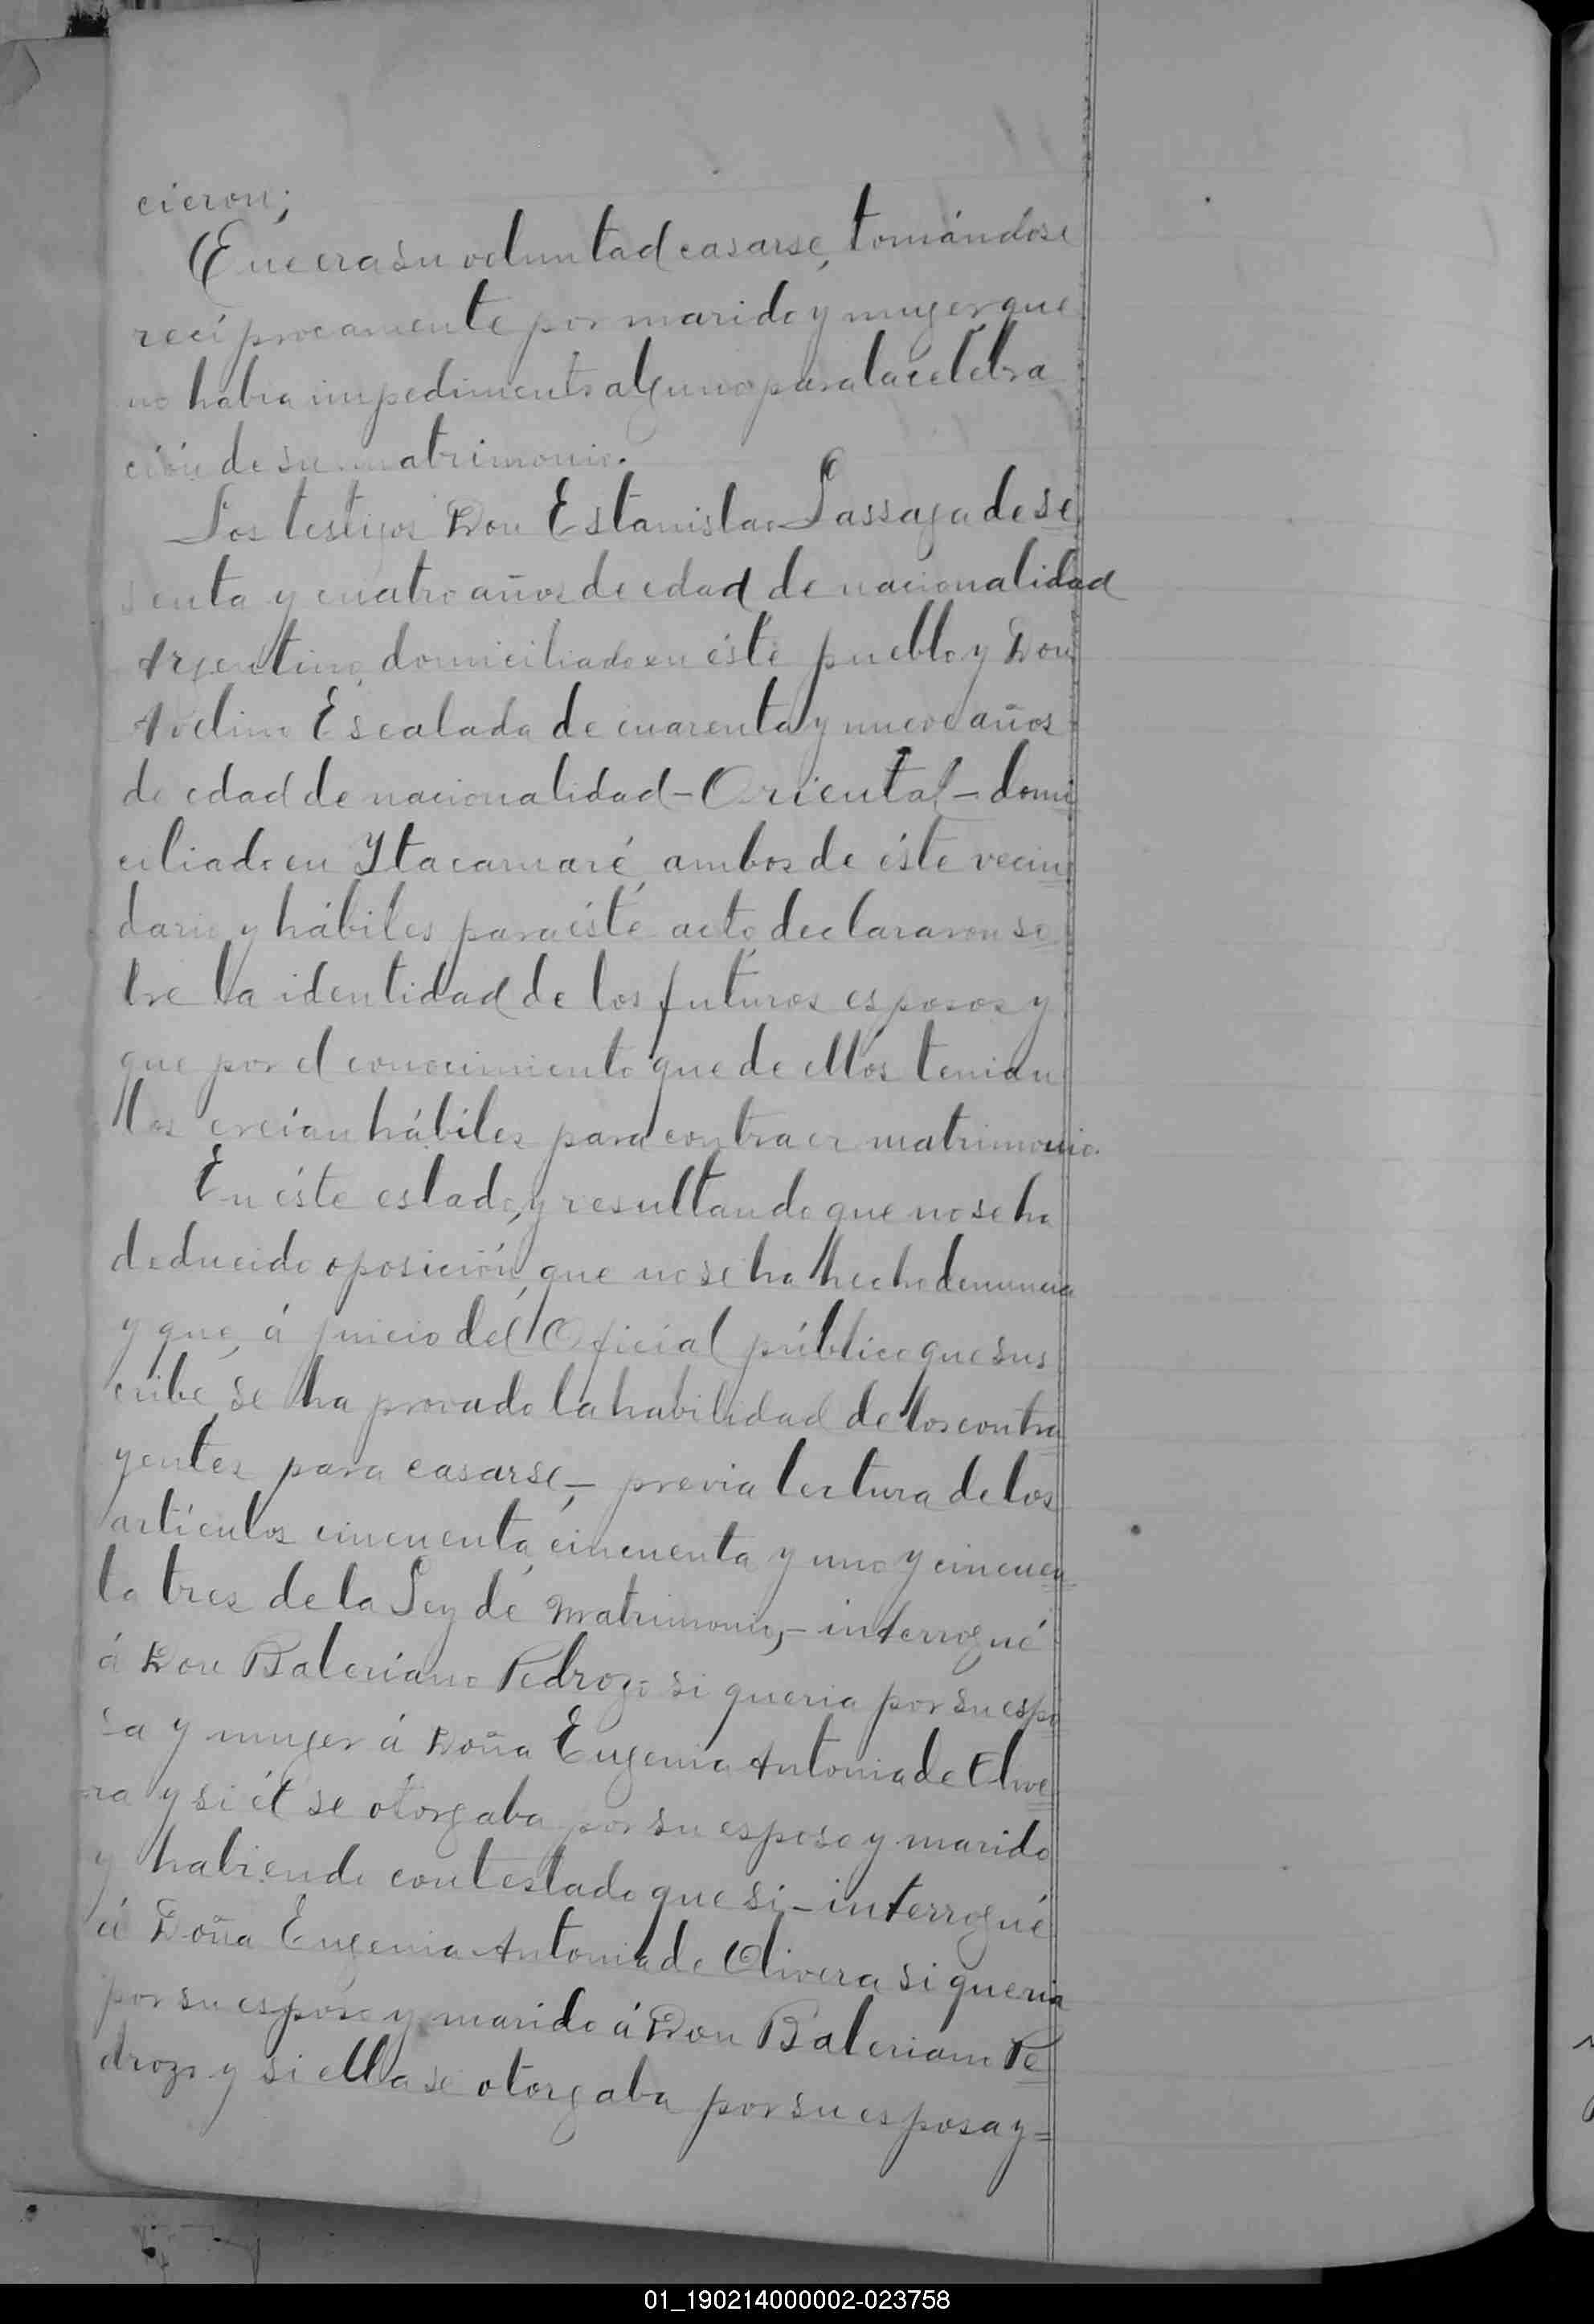 cieron;
Que era su voluntad casarse, tomándose
recíprocamente por marido y muger que
no habia impedimento alguno para la celebra
ción de su matrimonio.
Los testigos Don Estanislao Lassaga de se
senta y cuatro años de edad de nacionalidad
Argentino, domiciliado en éste pueblo y Don
Avelino Escalada de cuarenta y nueve años
de edad de nacionalidad - Oriental - domi
ciliado en Ytacamaré, ambos de éste vecin
dario y hábiles para éste acto, declararon so
bre la identidad de los futuros esposos y
que por el conocimiento que de ellos tenian
los creían hábiles para contraer matrimonio.
En éste estado, y resultando que no se ha
deducido oposición, que no se ha hecho denuncia
y que, á juicio del Oficial público que sus
cribe, se ha provado la habilidad de los contra
yentes para casarse, - previa lectura de los
artículos cincuenta, cincuenta y uno y cincuen
ta tres de la Ley de Matrimonio, - interrogué
á Don Baleriano Pedrozo si queria por su espo
sa y muger á Doña Eugenia Antonia de Olive
ra y si él se otorgaba por su esposo y marido
y habiendo contestado que si - interrogué
á Doña Eugenia Antonia de Olivera si queria
por su esposo y marido á Don Baleriano Pe
drozo y si ella se otorgaba por su esposa y =
01_190214000002-023758